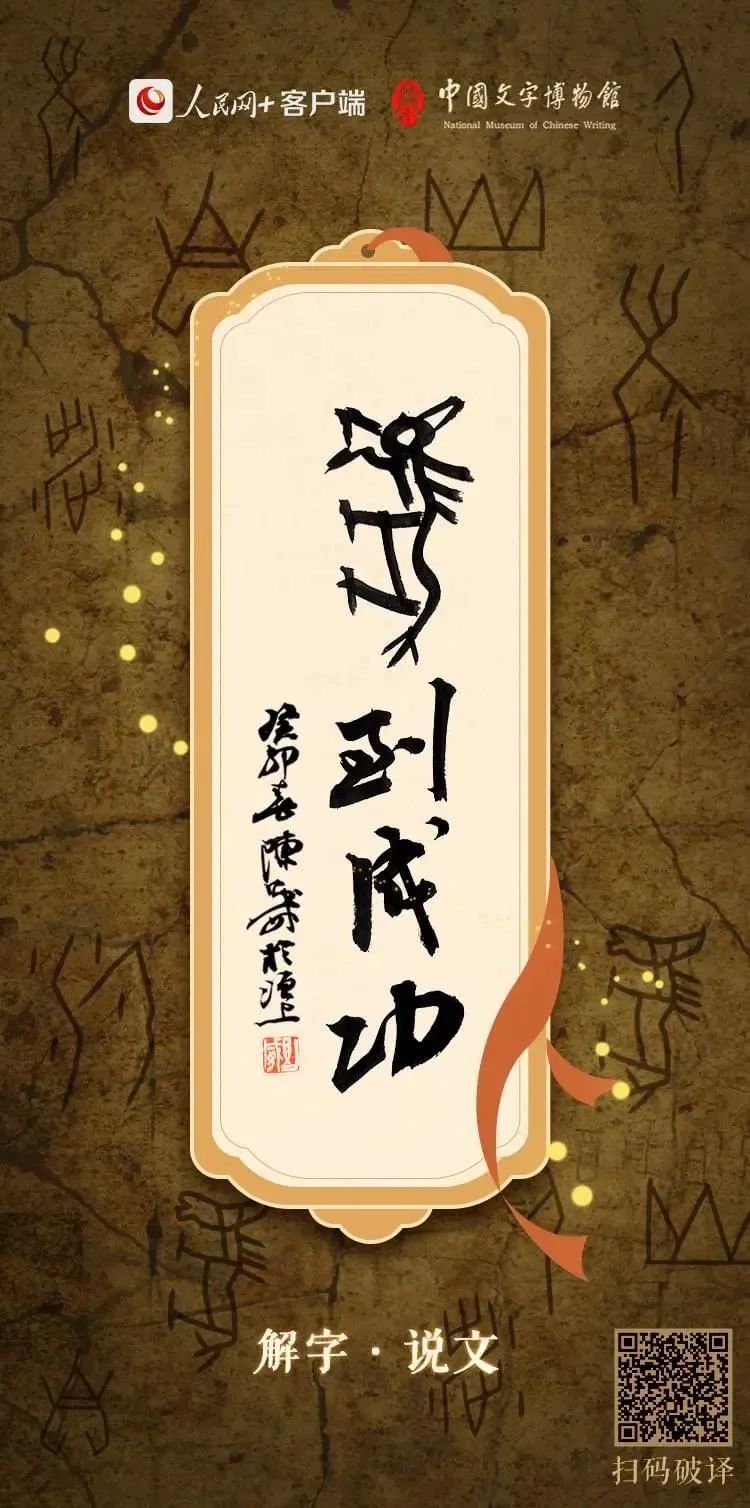 人民网+客户端
中國文字博物館
National Museum of Chinese Writing
馬到成功
癸卯春陳
解字·说文
扫码破译